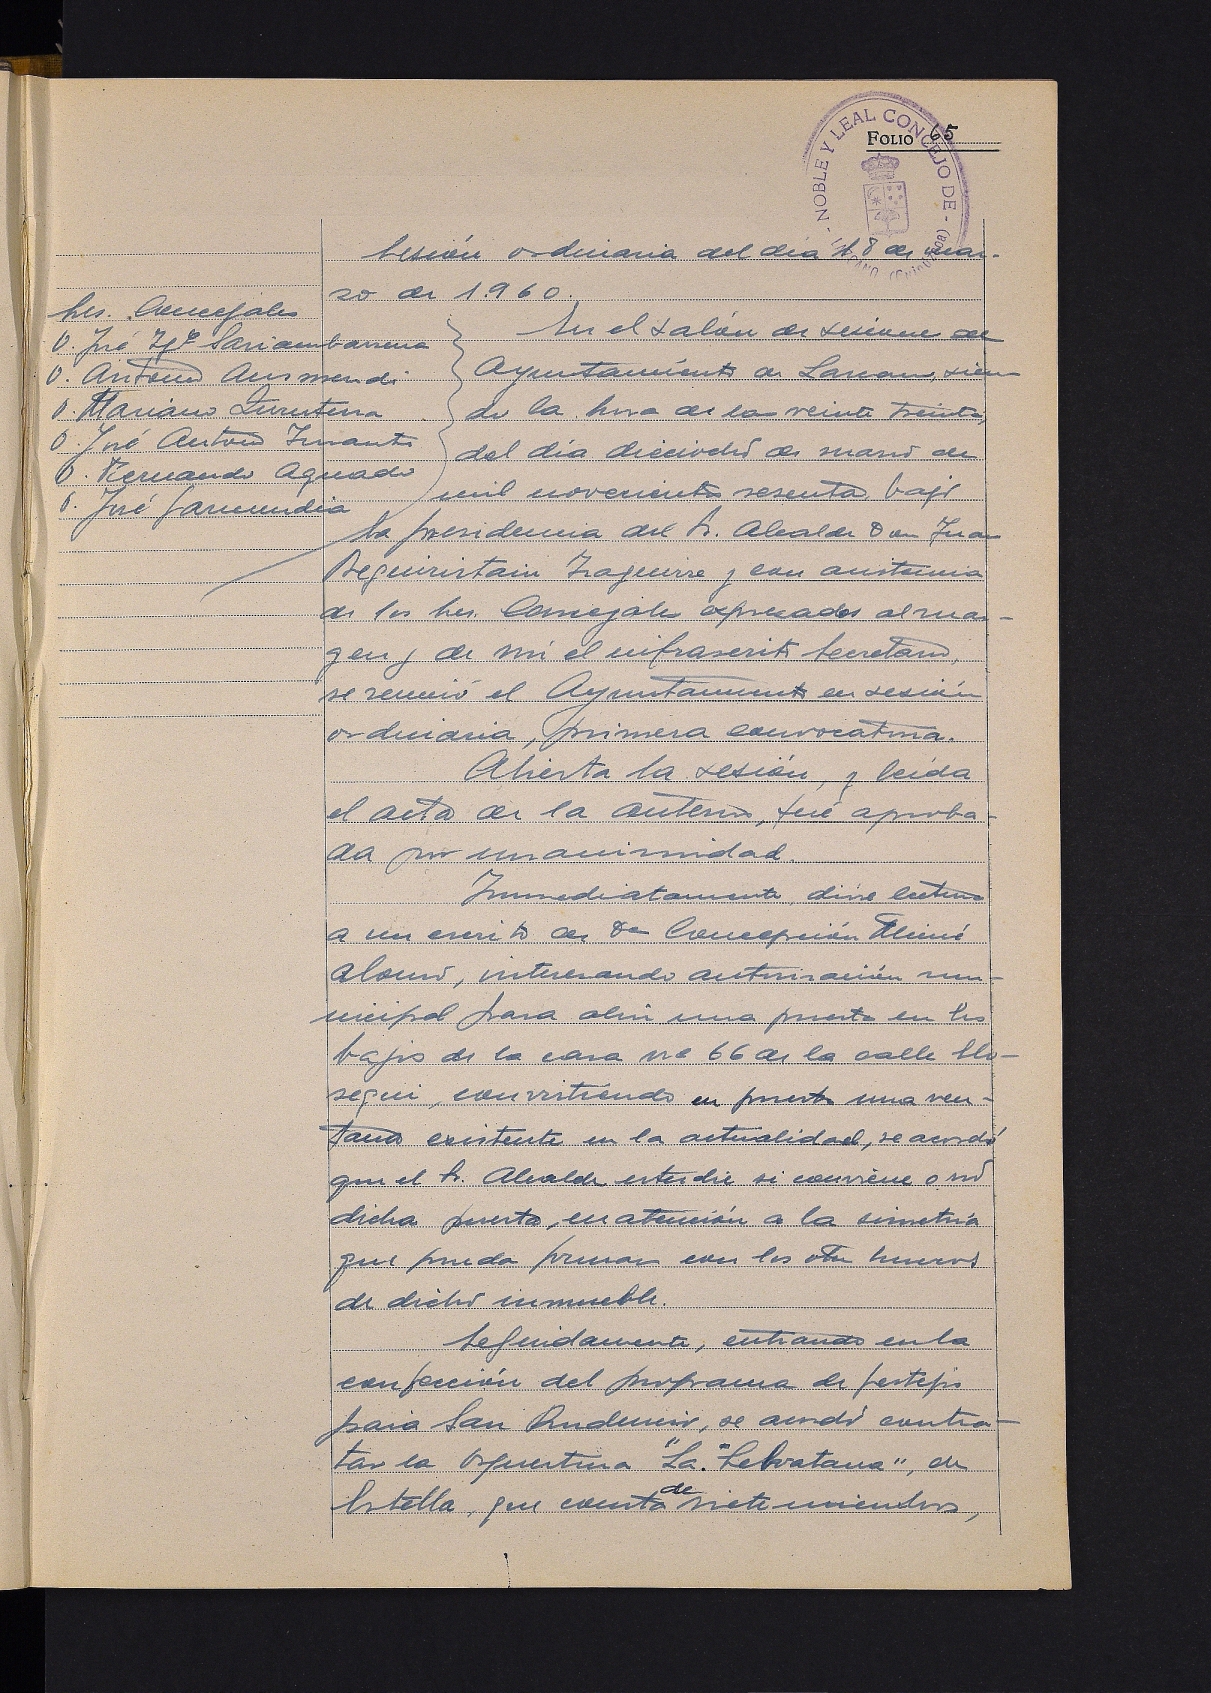 NOBLE Y LEAL CONCEJO DE
FOLIO 65
Sesión ordinaria del día 18 de mar-
zo de 1.960.
Sres. Concejales
D. José Igº Sariambarrena
D. Antonio Ausmendi
D. Mariano Zurutuza
D. José Antonio
D. Fernando Aguado
D. José Garmendia
En el salón de sesiones del
Ayuntamiento de Lazcano, sien-
do la hora de las veinte treinta,
del día dieciocho de marzo de
mil novecientos sesenta, bajo
la presidencia del Sr. Alcalde Don Juan
Beguiristain Izaguirre y con asistencia
de los Sres. Concejales expresados al mar-
gen y de mí el infrascrito Secretario,
se reunió el Ayuntamiento en sesión
ordinaria, primera convocatoria.
Abierta la sesión, y leída
el acta de la anterior, fué aproba-
da por unanimidad.
Inmediatamente, dióse lectura
a un escrito de Dª Concepción
Alonso, interesando autorización mu-
nicipal para abrir una puerta en los
bajos de la casa nº 66 de la calle Elo-
segui, convirtiendo en puerta una ven-
tana existente en la actualidad, se acordó
que el Sr. Alcalde estudie si conviene o nó
dicha puerta, en atención a la simetría
que pueda formar con los otros huecos
de dicho inmueble.
Seguidamente, entrando en la
confección del programa de festejos
para San Prudencio, se acordó contra-
tar la orquestina "La Selvatana", de
Estella, que consta de siete miembros,